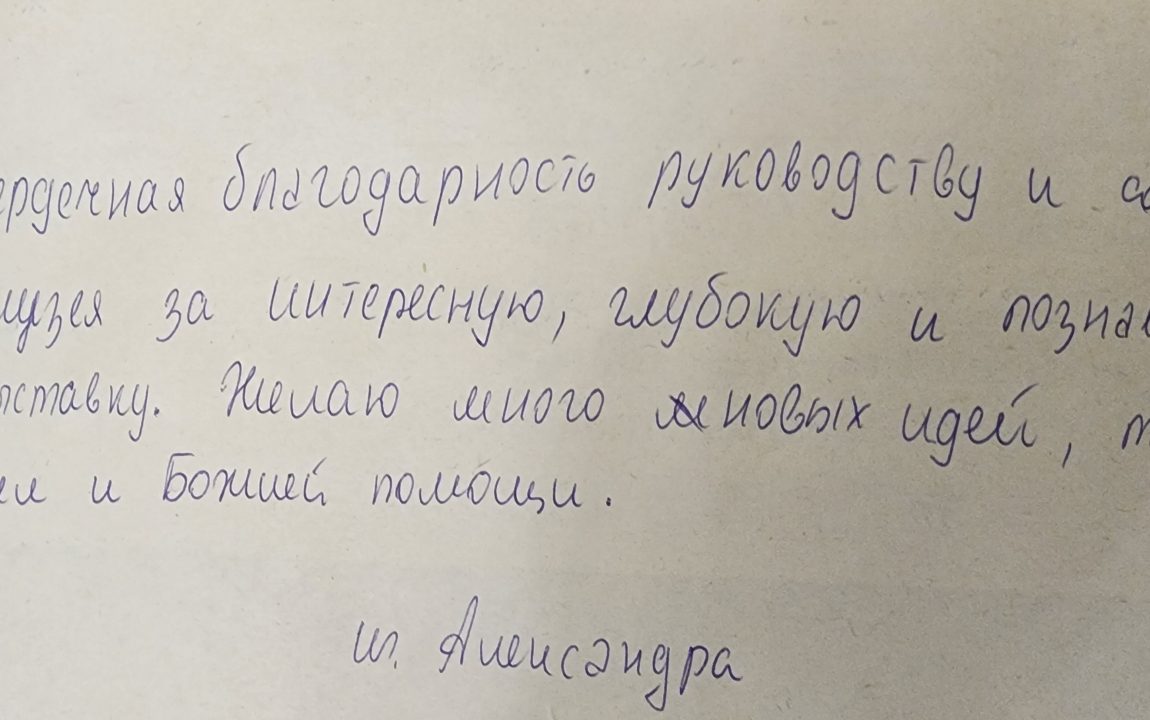 ердечная благодарность руководству и со
музея за интересную, глубокую и познав
ыставку. Желаю много новых идей, т
ел и Божией помощи.
ин. Александра